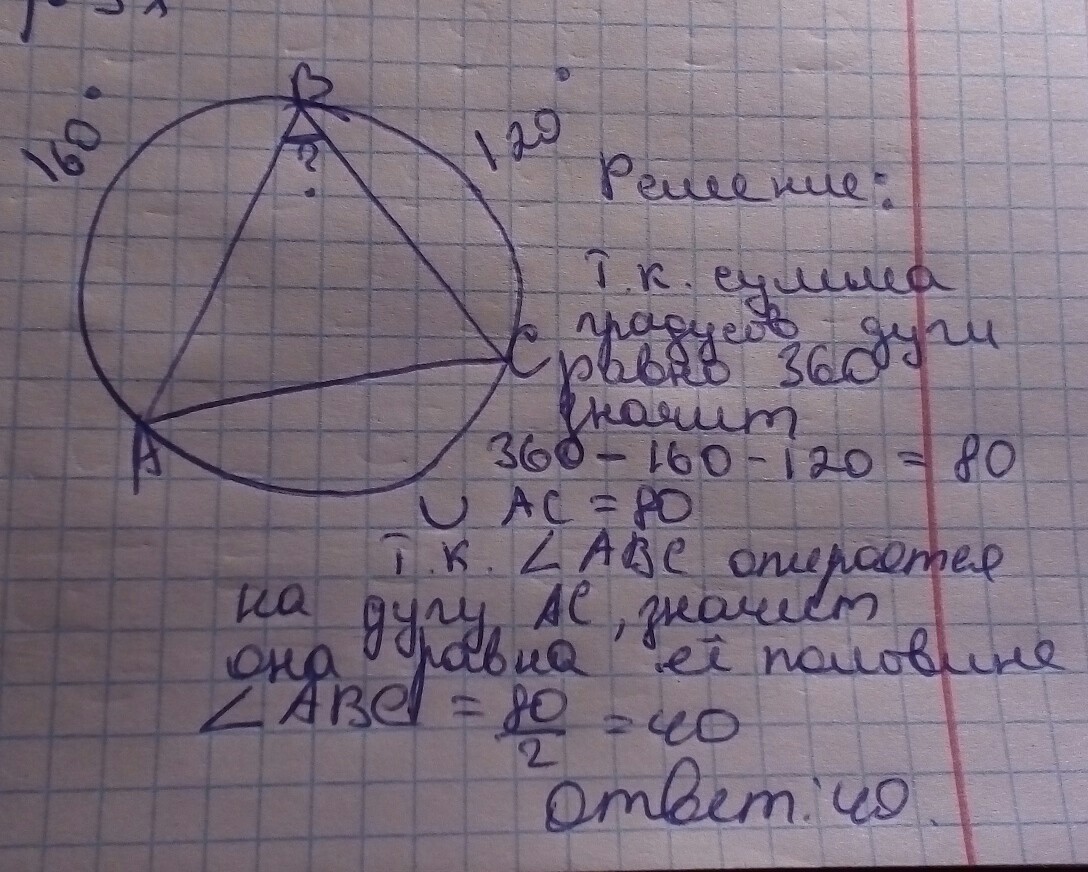 B
160°
120°
?
Решение:
Т.к. сумма
градусов дуги
C равно 360
значит
A
360 - 160 - 120 = 80
∪ AC = 80
Т.к. ∠ABC опирается
на дугу AC, значит
она равна её половине
∠ABC = 80/2 = 40
Ответ: 40.